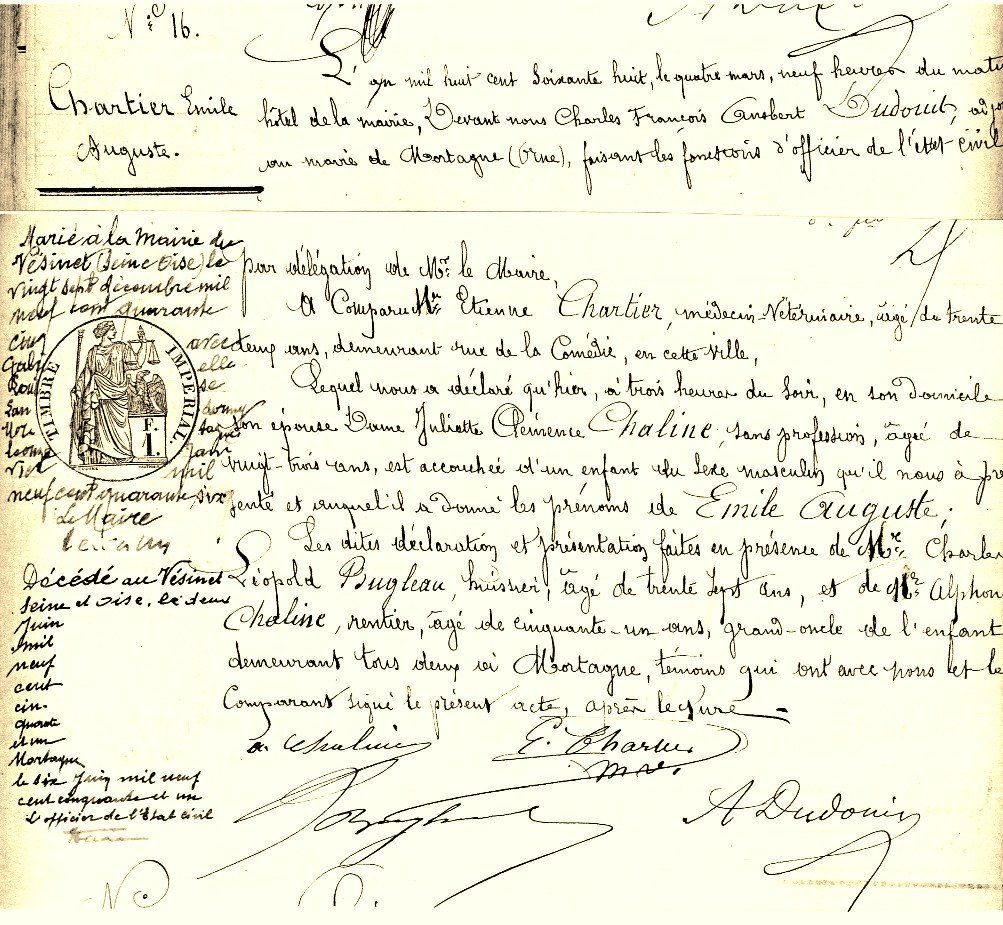 N° 16.
Chartier Emile
Auguste.
L'an mil huit cent soixante huit, le quatre mars, neuf heures du mati
hôtel de la mairie, Devant nous Charles François Ansbert Dudouit, adjo
au maire de Mortagne (Orne), faisant les fonctions d'officier de l'état-civil
par délégation de Mr. le Maire,
A Comparu Mr. Etienne Chartier, médecin-Vétérinaire, âgé de trente
deux ans, demeurant rue de la Comédie, en cette ville,
Lequel nous a déclaré qu'hier, à trois heures du soir, en son domicile
son épouse Dame Juliette Clémence Chaline, sans profession, âgée de
vingt-trois ans, est accouchée d'un enfant du sexe masculin qu'il nous à pré
senté et auquel il a donné les prénoms de Emile Auguste;
Les dites déclaration et présentation faites en présence de Mr. Charles
Léopold Bugleau, huissier, âgé de trente sept ans, et de Mr. Alphon
Chaline, rentier, âgé de cinquante-un ans, grand-oncle de l'enfant
demeurant tous deux à Mortagne, témoins qui ont avec nous et le
Comparant signé le présent acte, après lecture
a. Chaline
E. Chartier
mre.
A Dudouit
Marié à la Mairie du
Vésinet (Seine Oise) le
vingt sept décembre mil
neuf cent quarante
cinq avec
Gabri elle
se
Lan dormy
jan
mil
neuf cent quarante six
Le Maire
TIMBRE IMPÉRIAL
F.
1.
Décédé au Vésinet
Seine et Oise, le deux
Juin
mil
neuf
cent
cin-
quante
et un
Mortagne
le six Juin mil neuf
cent cinquante et un
L'officier de l'Etat civil
N°